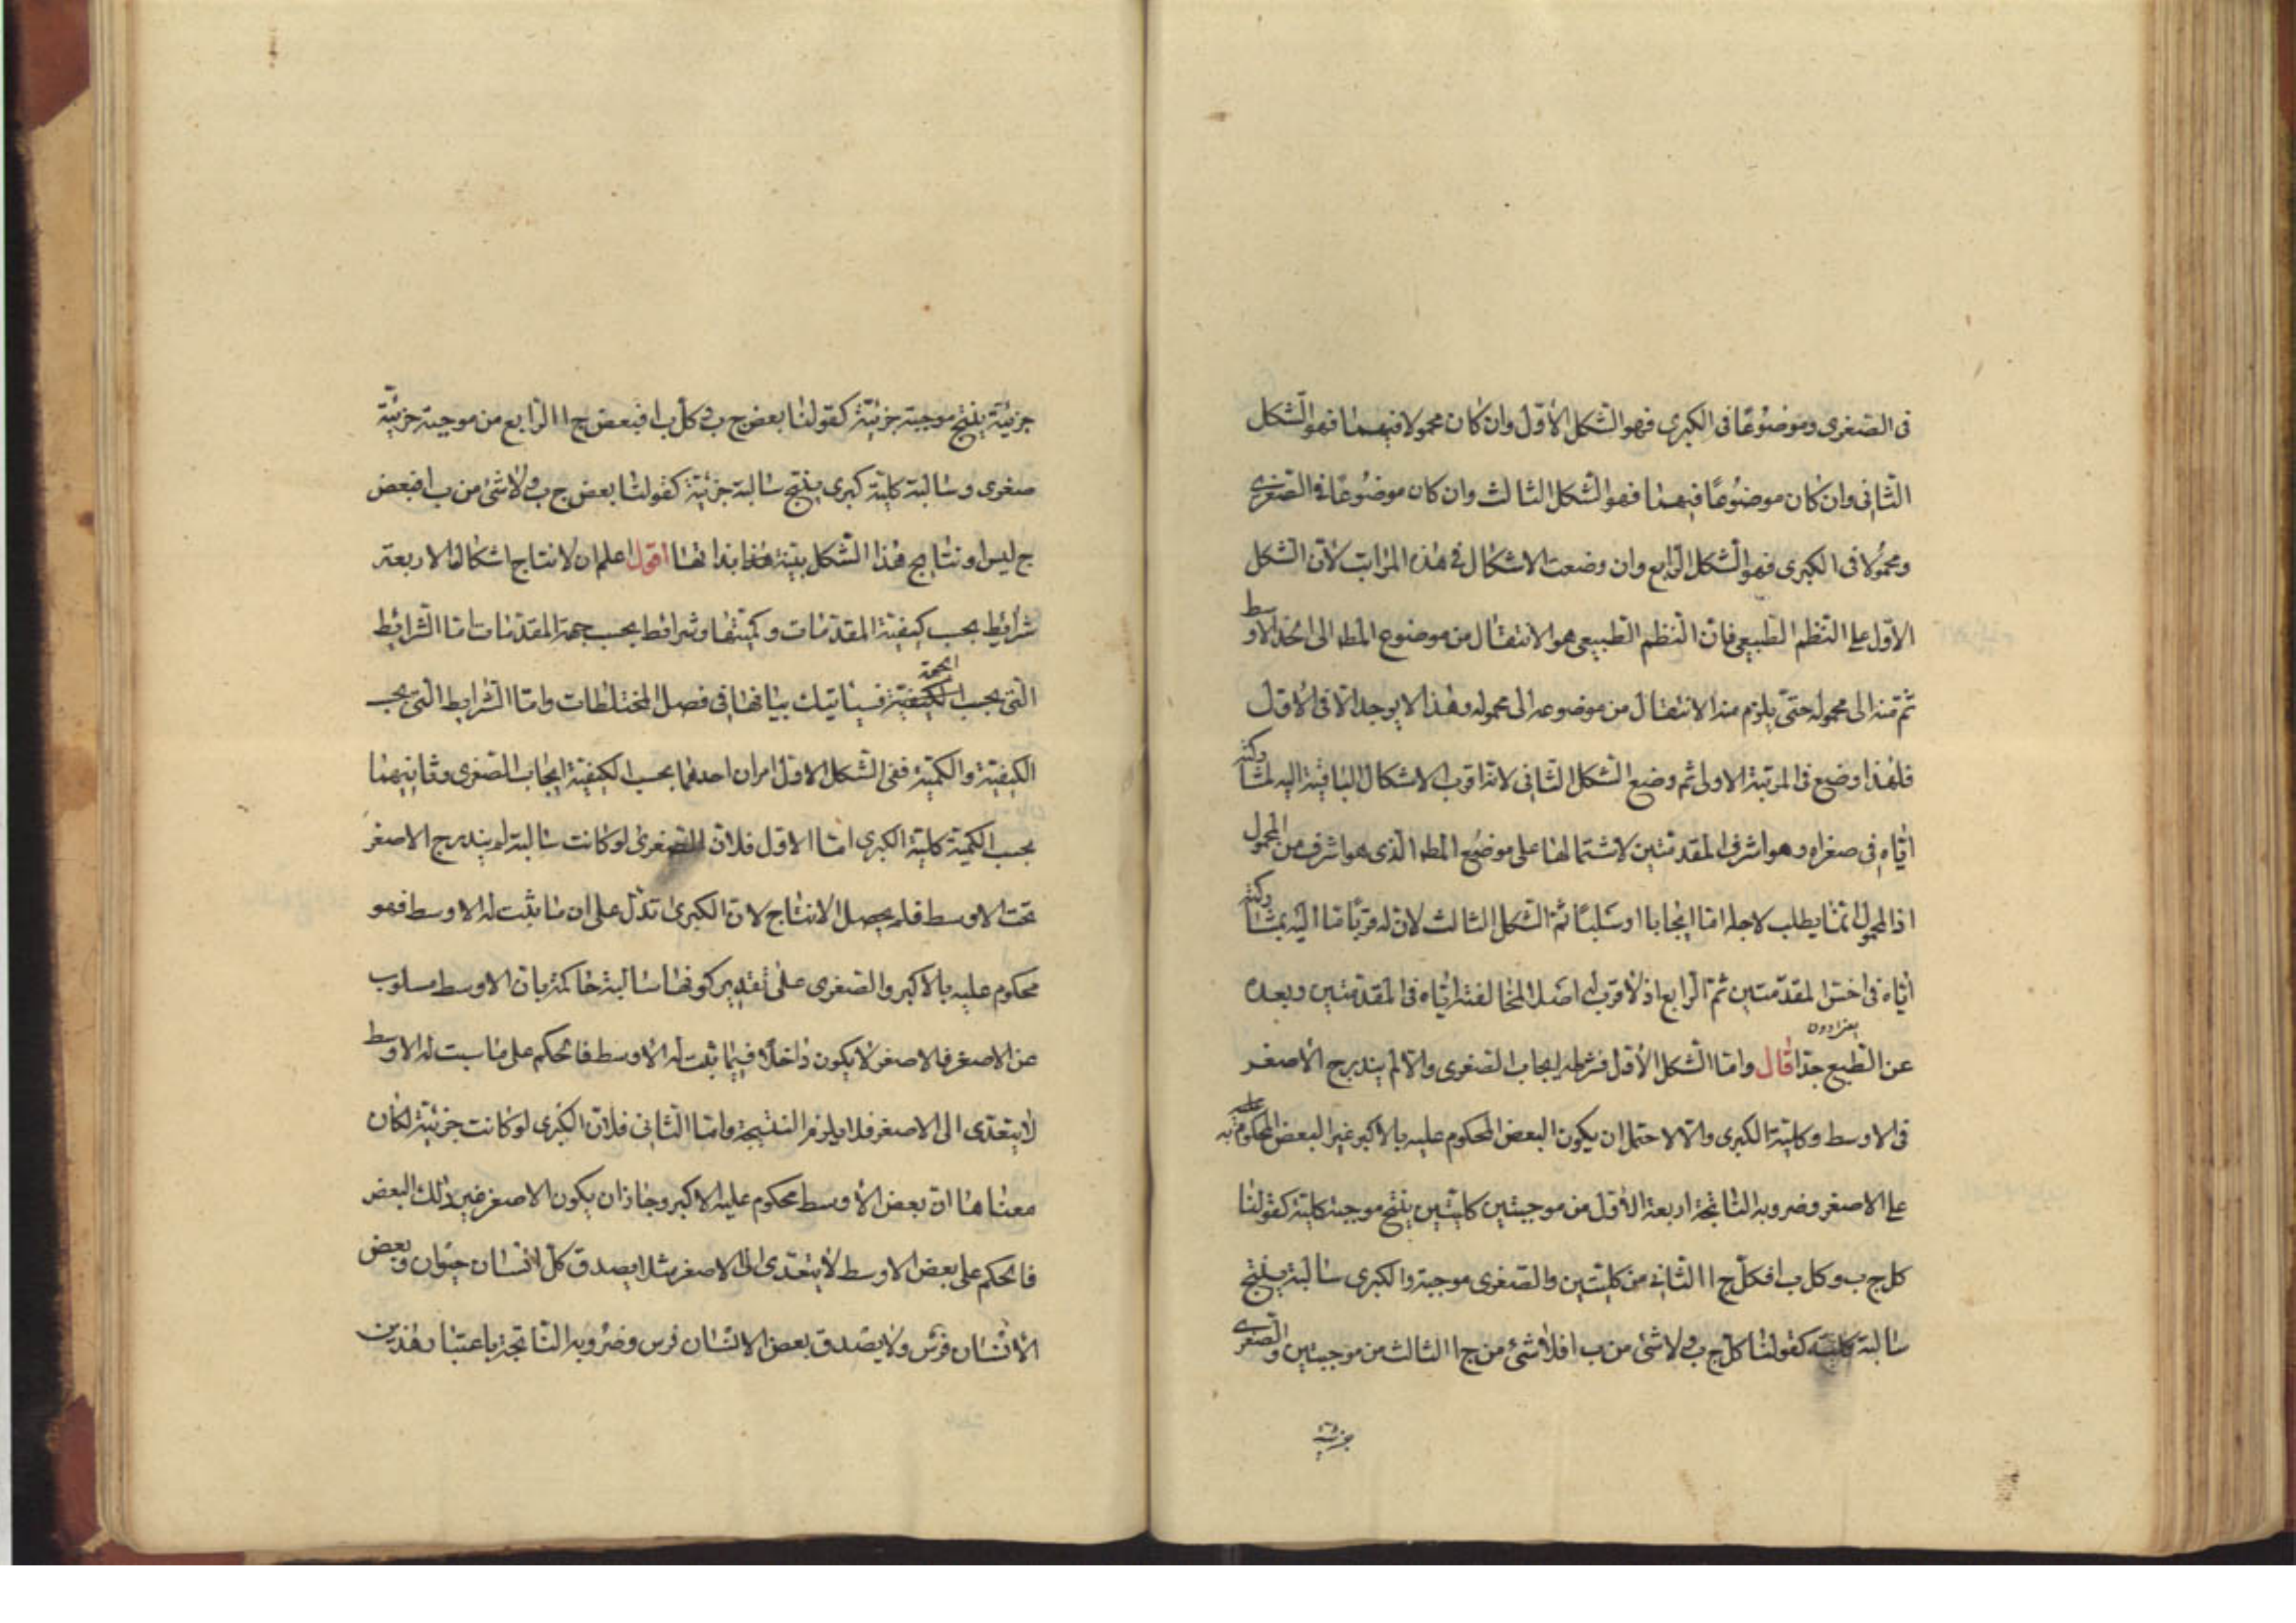 فى الصغرى وموضوعًا فى الكبرى فهو الشكل الأوّل وان كان محمولا فيهما فهو الشكل
الثانى وان كان موضوعًا فيهما فهو الشكل الثالث وان كان موضوعًا فى الصغرى
ومحمولا فى الكبرى فهو الشكل الرابع وان وضعت الاشكال فى هذه المراتب لأن الشكل
الاوّل على النظم الطبيعى فانّ النظم الطبيعى هو الانتقال من موضوع المط الى الحد الاوسط
ثمّ منه الى محموله حتى يلزم منه الانتقال من موضوعه الى محموله وهذا لا يوجد الّا فى الأوّل
فلهذا وضع فى المرتبة الاولى ثم وضع الشكل الثانى لانه اقرب الاشكال الباقية اليه لمشاركته
ايّاه فى صغراه وهو اشرف المقدمتين لاشتمالها على موضوع المط الذى هو اشرف من المحمول
اذ المحمول انما يطلب لاجله امّا ايجابا او سلبًا ثمّ الشكل الثالث لانّ له قربًا ما اليه بمشاركته
ايّاه فى اخسّ المقدّمتين ثمّ الرابع اذ لا قرب له اصلا لمخالفته ايّاه فى المقدّمتين وبعده
عن الطبع جدّا قال وامّا الشكل الأوّل فشرطه ايجاب الصغرى والّا لم يندرج الأصغر
فى الاوسط وكلية الكبرى والّا لاحتمل ان يكون البعض المحكوم عليه بالاكبر غير البعض المحكوم به
على الاصغر وضروبه الناتجة اربعة الأوّل من موجبتين كليتين ينتج موجبة كليّة كقولنا
كل ج ب وكل ب ا فكلّ ج ا الثانى من كليّتين والصغرى موجبة والكبرى سالبة ينتج
سالبة كلية كقولنا كلّ ج ب ولا شئ من ب ا فلا شئ من ج ا الثالث من موجبتين والصغرى
جزئية
جزئيّة ينتج موجبة جزئيّة كقولنا بعض ج ب وكلّ ب ا فبعض ج ا الرّابع من موجبة جزئيّة
صغرى وسالبة كليّة كبرى ينتج سالبة جزئيّة كقولنا بعض ج ب ولا شئ من ب ا فبعض
ج ليس ا ونتايج هذا الشكل بيّنة بذاتها اقول اعلم ان لانتاج اشكال الاربعة
شرائط بحسب كيفيّة المقدّمات وكميّتها وشرائط بحسب جهة المقدّمات امّا الشرائط
الّتى بحسب الجهة فسيأتيك بيانها فى فصل المختلطات وامّا الشرايط الّتى بحسب
الكيفيّة والكميّة ففى الشكل الاوّل امران احدهما بحسب الكيفيّة ايجاب الصغرى وثانيهما
بحسب الكميّة كليّة الكبرى امّا الاوّل فلانّ الصغرى لو كانت سالبة لم يندرج الاصغر
تحت الاوسط فلم يحصل الانتاج لانّ الكبرى تدلّ على ان ما يثبت له الاوسط فهو
محكوم عليه بالاكبر والصغرى على تقدير كونها سالبة حاكمة بان الاوسط مسلوب
عن الاصغر فالاصغر لا يكون داخلًا فيما ثبت له الاوسط فالحكم على ما ثبت له الاوسط
لا يتعدّى الى الاصغر فلا يلزم النتيجة وامّا الثانى فلانّ الكبرى لو كانت جزئيّة لكان
معناها انّ بعض الاوسط محكوم عليه الاكبر وجاز ان يكون الاصغر غير ذلك البعض
فالحكم على بعض الاوسط لا يتعدّى الى الاصغر مثلا يصدق كلّ انسان حيوان وبعض
الانسان فرس ولا يصدق بعض الانسان فرس وضروبه الناتجة باعتبار هذين